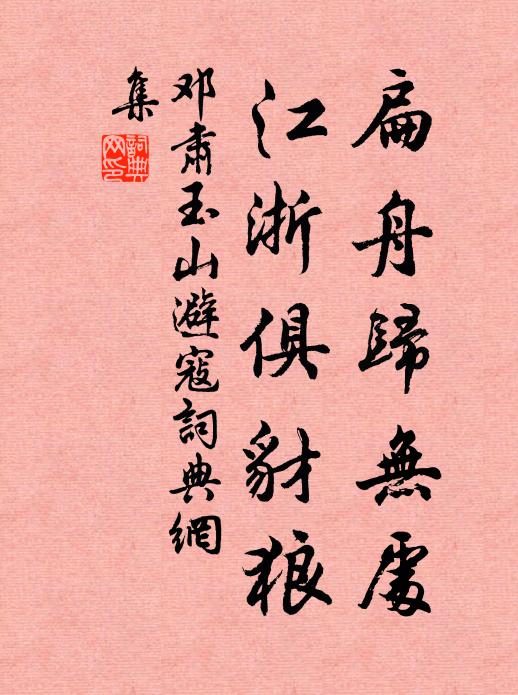 扁舟歸無處
江浙俱豺狼
邓肅玉山避寇詞典網
集
詞典網印